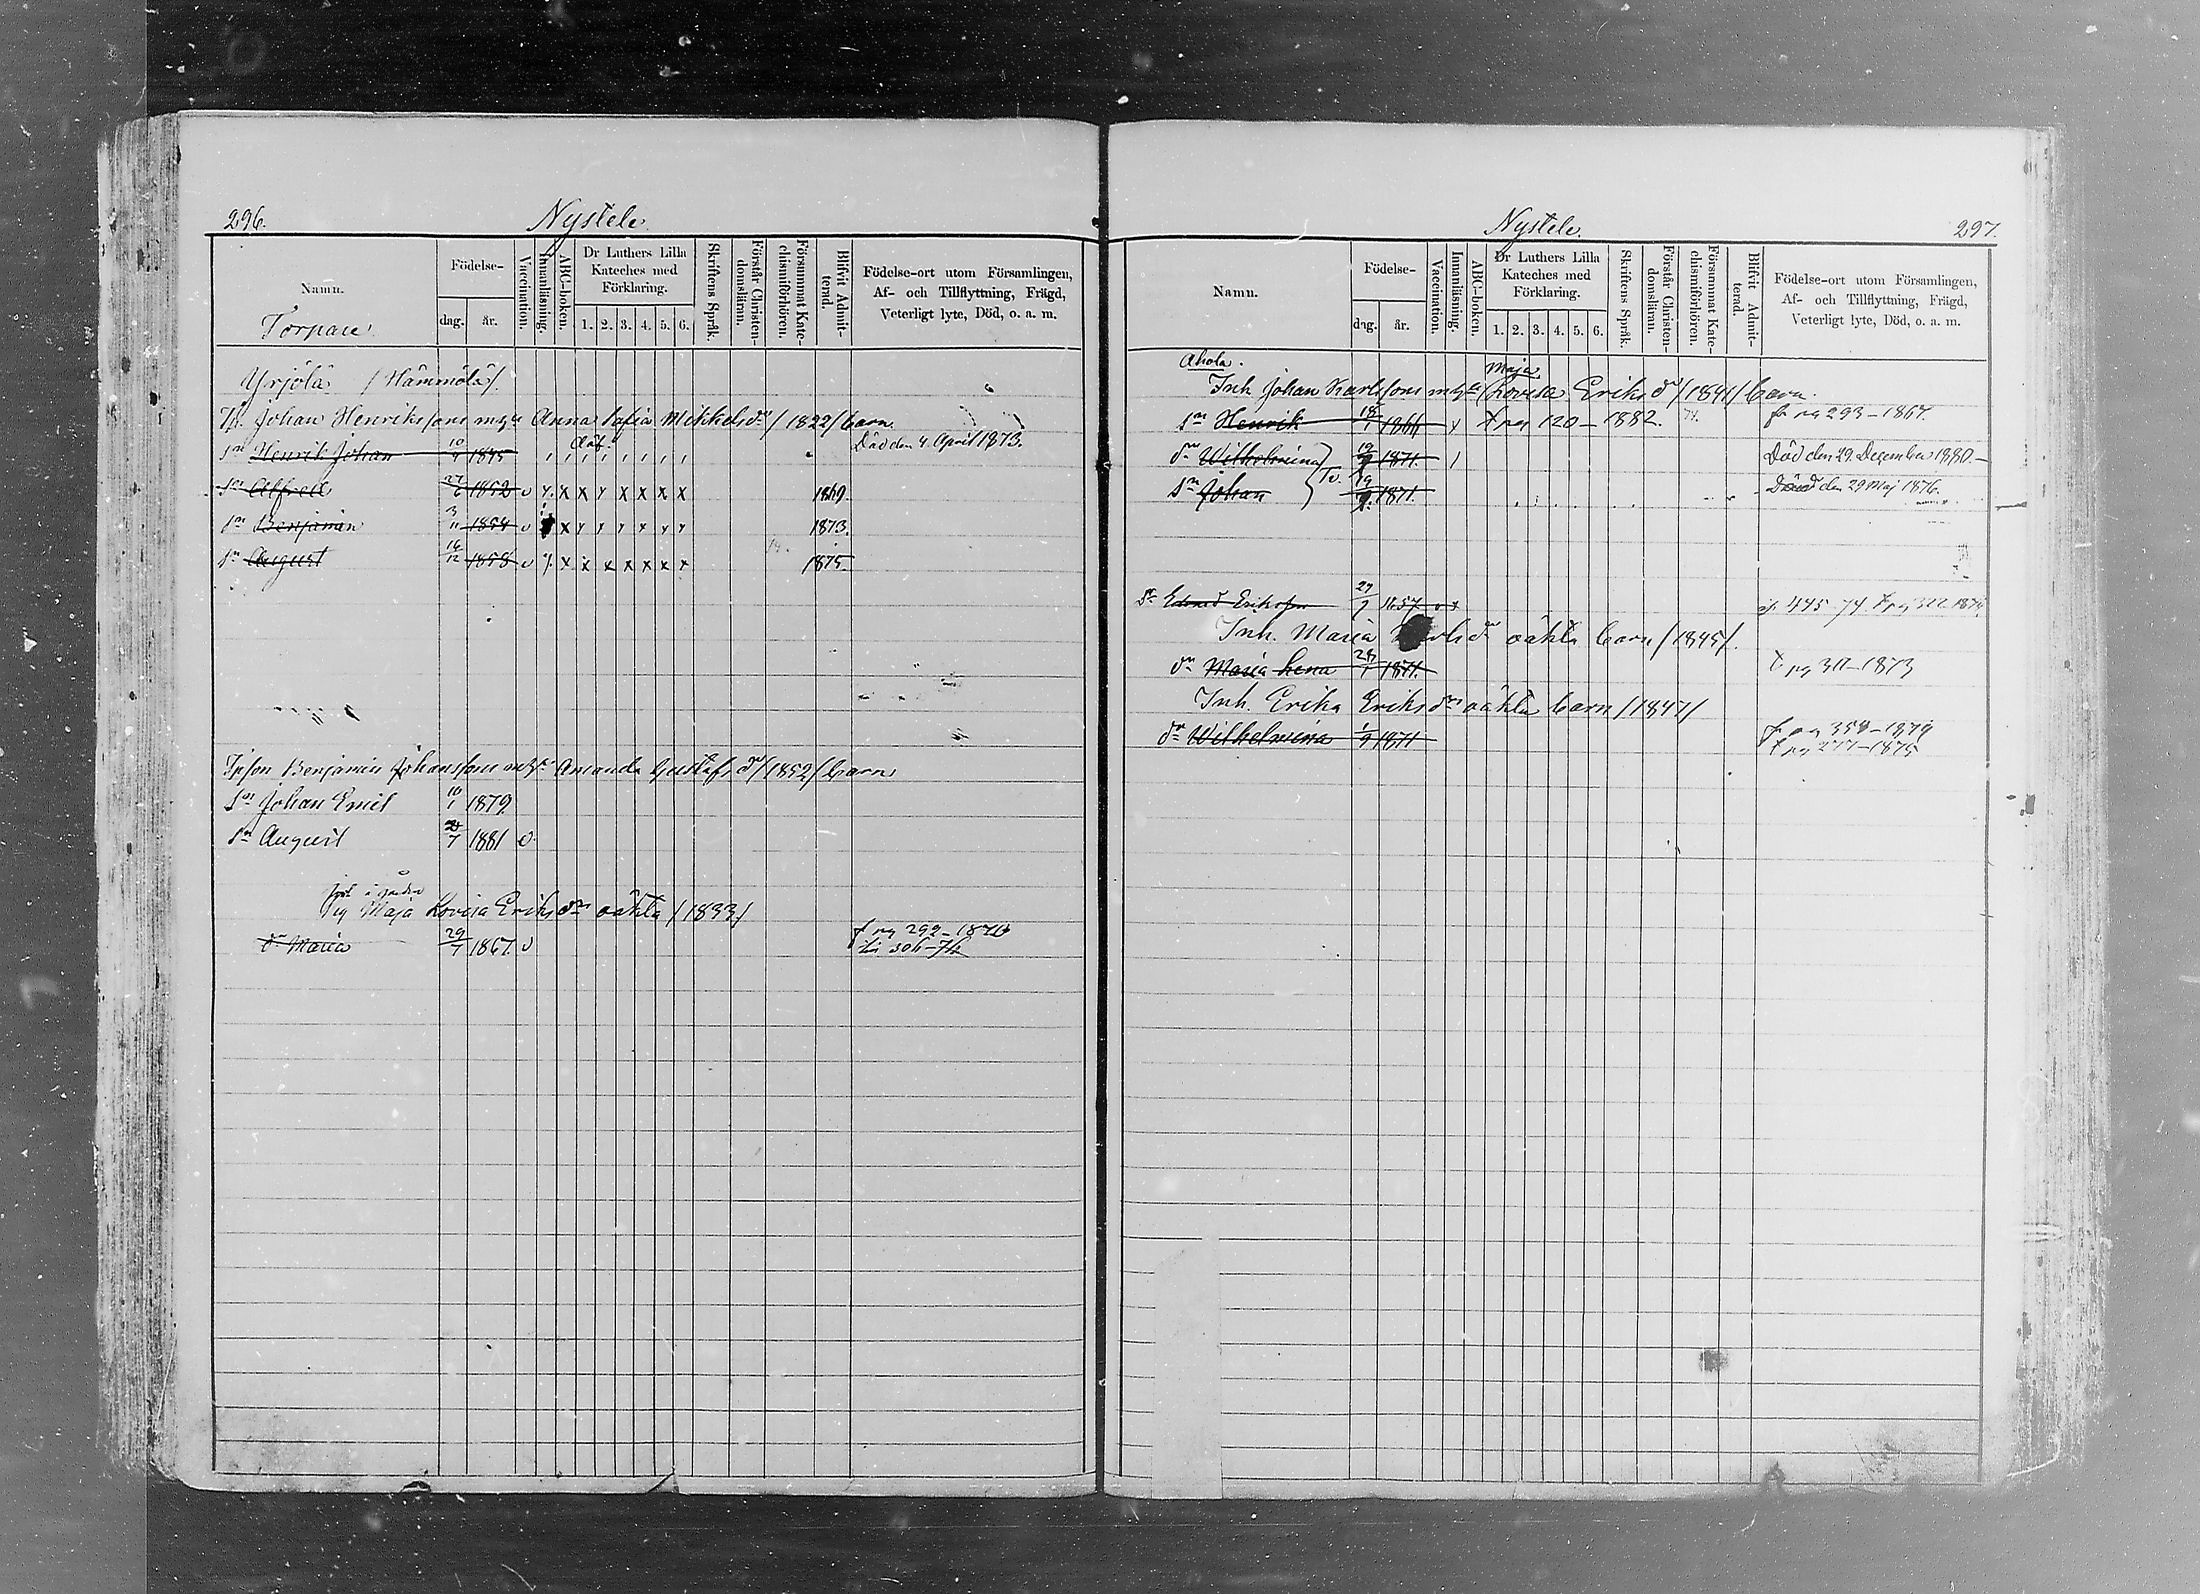 296.
Nystele.
Namn.
Torpare.
Födelse-
dag.
år.
Vaccination.
Innanläsning.
ABC-boken.
Dr Luthers Lilla
Kateches med
Förklaring.
1. 2. 3. 4. 5. 6.
Skriftens Språk.
Förstår Christen-
domsläran.
Försummat Kate-
chismiförhören.
Blifvit Admit-
terad.
Födelse-ort utom Församlingen,
Af- och Tillflyttning, Frägd,
Veterligt lyte, Död, o. a. m.
Yrjölä /Hämmölä/.
Johan Henrikssons Anna Sofia Mikkelsdr /1822/ barn
sn Henrik Johan 10/4 1845 Död den 4 April 1873.
sn Alfred 27/6 1852 v x x x x x x x 1869
sn Benjamin 3/11 1854 v x x x x x x x 1873.
sn August 16/12 1858 v x x x x x x x 1875
Benjamin Johanssons Amanda Gustafsdr /1852/ barn
sn Johan Emil 10/1 1879
sn August /7 1881 v
Maja Lovisa Eriksdrs oäkta /1833/
dr Maria 29/7 1867. v
297.
Nystele.
Namn.
Födelse-
dag.
år.
Vaccination.
Innanläsning.
ABC-boken.
Dr Luthers Lilla
Kateches med
Förklaring.
1. 2. 3. 4. 5. 6.
Skriftens Språk.
Förstår Christen-
domsläran.
Försummat Kate-
chismiförhören.
Blifvit Admit-
terad.
Födelse-ort utom Församlingen,
Af- och Tillflyttning, Frägd,
Veterligt lyte, Död, o. a. m.
Ahola.
Maja
Inh. Johan Karlssons Lovisa Eriksdr /1841/ barn.
sn Henrik 18/1 1866 x t pg 120-1882. fr pg 293-1867
dr Wilhelmina 1871. Död den 29 December 1880.
sn Johan 1871. Död den 29 Maj 1876.
Eriksson 27/7 1857 v x
Inh. Maria oäkta barn /1845/.
dr Maria Lena 1871. t pg 311-1873
Inh. Erika Eriksdrs oäkta barn /1847/
dr Wilhelmina 1/9 1871